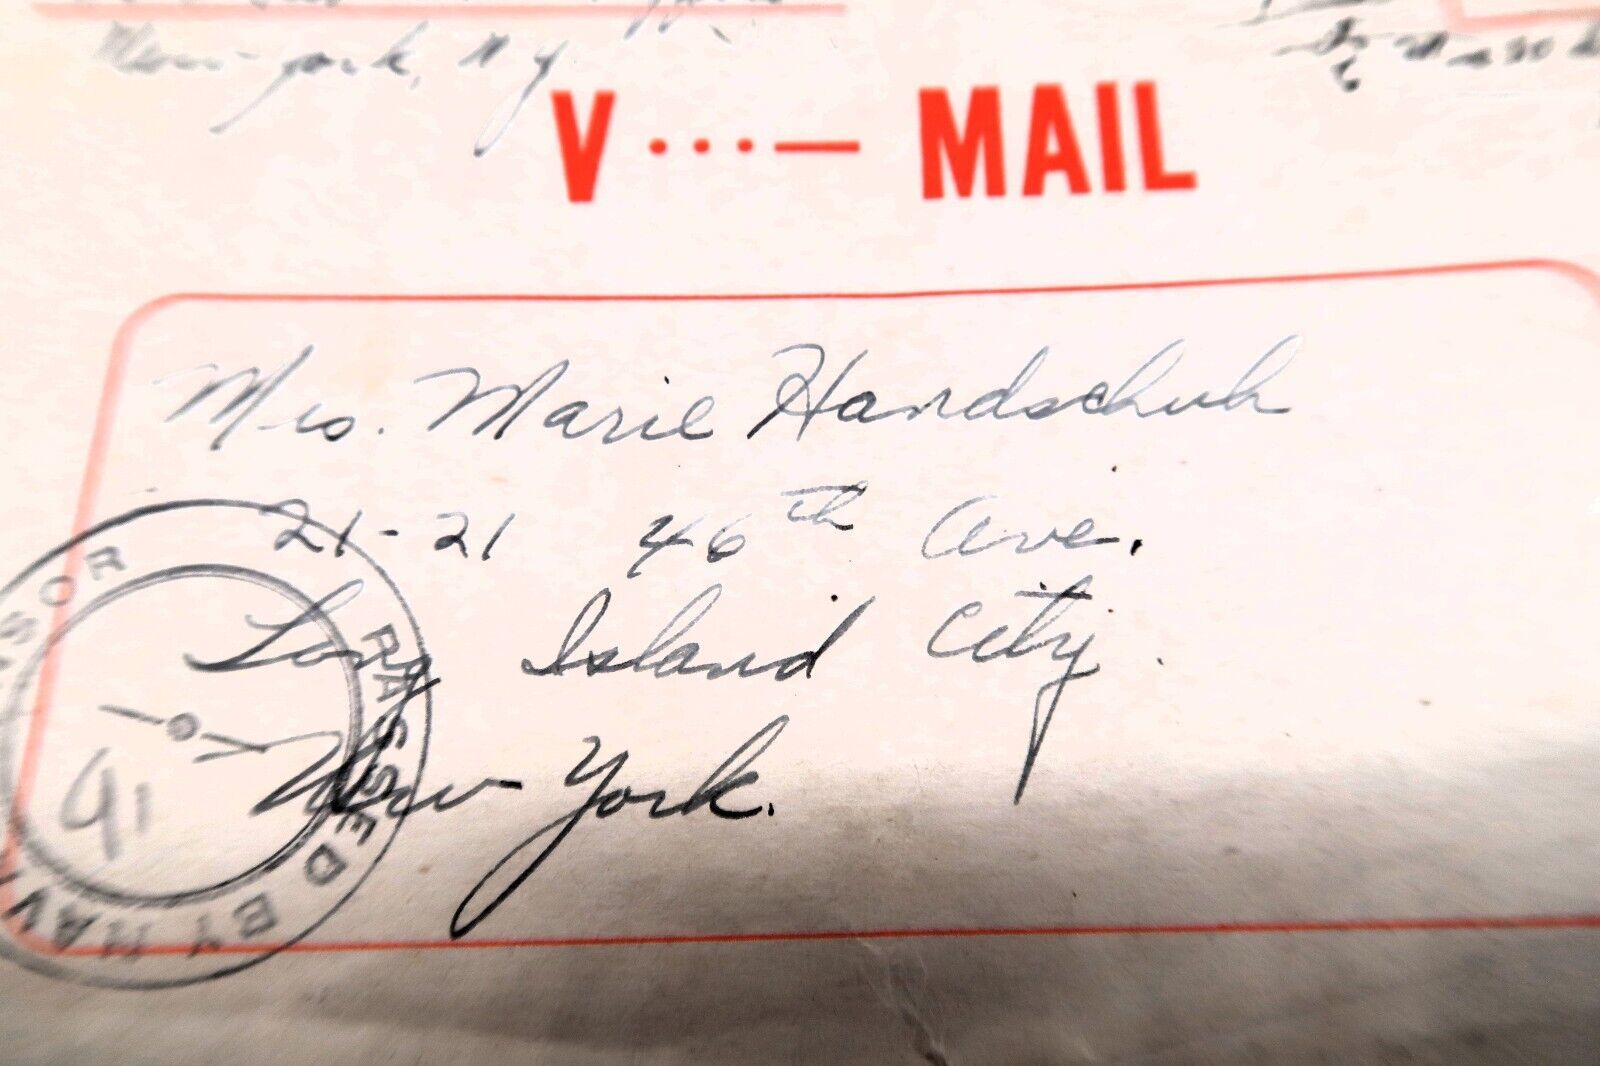 New York, N.Y.
V ...— MAIL
Mrs. Marie Handschuh
21-21 46th Ave.
Long Island City
New York.
PASSED BY NAV SOR
91